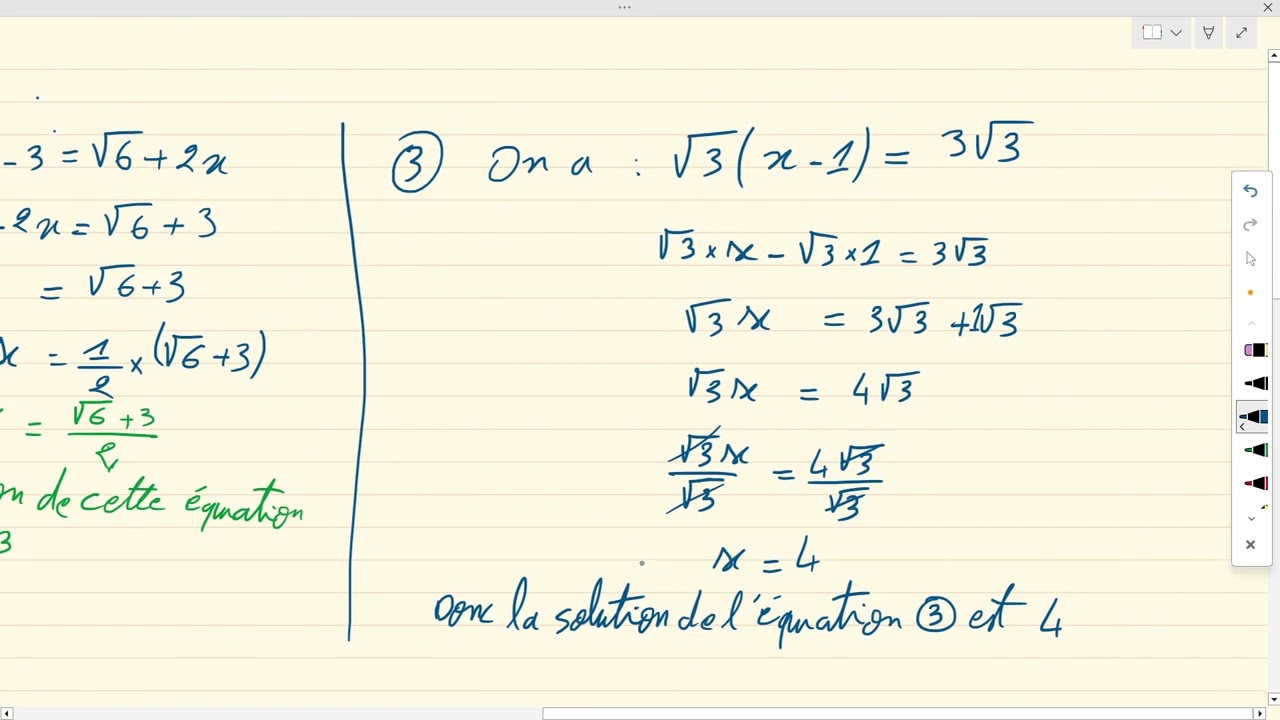 - 3 = √6 + 2x
- 2x = √6 + 3
= √6 + 3
x = 1/2 × (√6 + 3)
= (√6 + 3)/2
on de cette équation
3
③ On a : √3(x - 1) = 3√3
√3 × x - √3 × 1 = 3√3
√3 x = 3√3 + 1√3
√3 x = 4√3
√3 x/√3 = 4√3/√3
x = 4
Donc la solution de l'équation ③ est 4